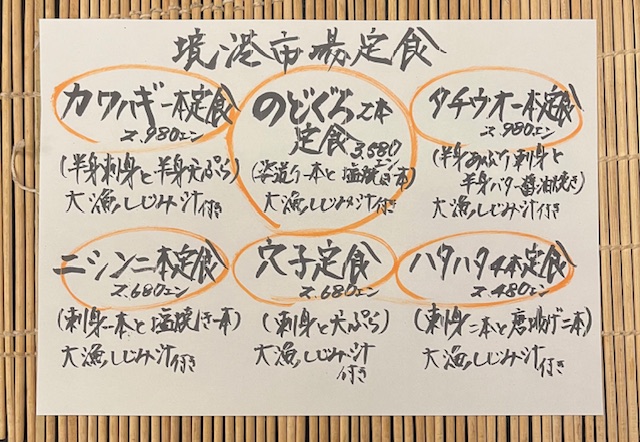 境港市場定食
カワハギ一本定食
2.980エン
(半身刺身と半身天ぷら)
大漁しじみ汁付き
のどぐろ2本
定食3.580エン
(姿造り一本と塩焼き一本)
大漁しじみ汁付き
タチウオ一本定食
2.980エン
(半身あぶり刺身と
半身バター醤油焼き)
大漁しじみ汁付き
ニシン二本定食
2.680エン
(刺身一本と塩焼き一本)
大漁しじみ汁付き
穴子定食
2.680エン
(刺身と天ぷら)
大漁しじみ汁
付き
ハタハタ4本定食
2.480エン
(刺身二本と唐揚げ二本)
大漁しじみ汁付き